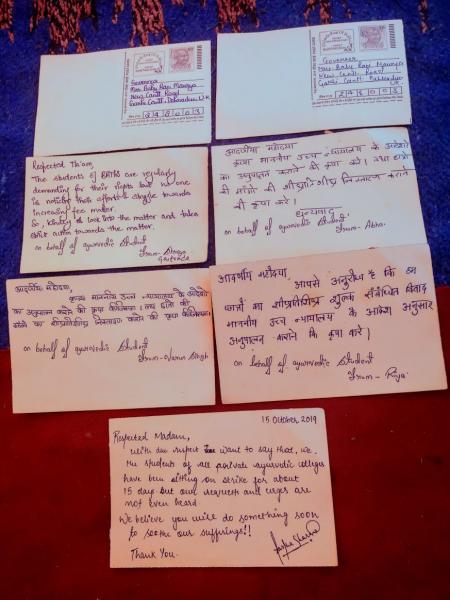 Governor
Mrs. Baby Rani Maurya
New Cantt Road
Garhi Cantt. Dehradun U.K
248003
Governor
Mrs. Baby Rani Maurya
New Cantt. Road
Garhi Cantt Dehradun
248003
Respected Ma'am,
The students of are regularly
demanding for their rights but no one
is noticing their efforts & struggle towards
increasing fee matter.
So, kindly look into the matter and take
strict action towards the matter.
on behalf of ayurvedic Student
from - Shreya
आदरणीय महोदया
कृपया माननीय उच्च न्यायालय के आदेशो
का अनुपालन कराने की कृपा करे। तथा छात्रो
की मांगो की शीघ्रातिशीघ्र निस्तारण कराने
की कृपा करे।
धन्यवाद
on behalf of ayurvedic Student
from - Abha.
आदरणीय महोदया,
कृपया माननीय उच्च न्यायालय के आदेशो
का अनुपालन करने की कृपा कीजियेगा। तथा छात्रो की
मांगो का शीघ्रातिशीघ्र निस्तारण करने की कृपा कीजियेगा।
on behalf of ayurvedic Student
from - Varun Singh
आदरणीय महोदया,
आपसे अनुरोध है कि हम
छात्रों का शीघ्रातिशीघ्र शुल्क संबंधित विवाद
माननीय उच्च न्यायालय के आदेश अनुसार
अनुपालन कराने कि कृपा करे।
on behalf of ayurvedic Student
from - Puja.
15 October 2019
Respected Madam,
with due respect I want to say that, we
the students of all private ayurvedic colleges
have been sitting on strike for about
15 days but our requests and urges are
not even heard.
We believe you will do something soon
to soothe our sufferings!!
Thank You.